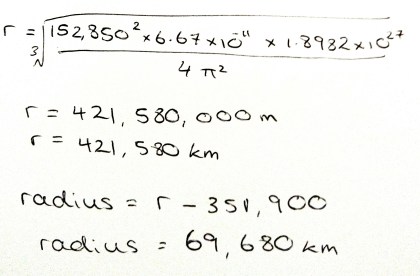 r = ∛(152,850² × 6.67 × 10⁻¹¹ × 1.8982 × 10²⁷
4 π²
r = 421, 580, 000 m
r = 421, 580 km
radius = r - 351, 900
radius = 69, 680 km